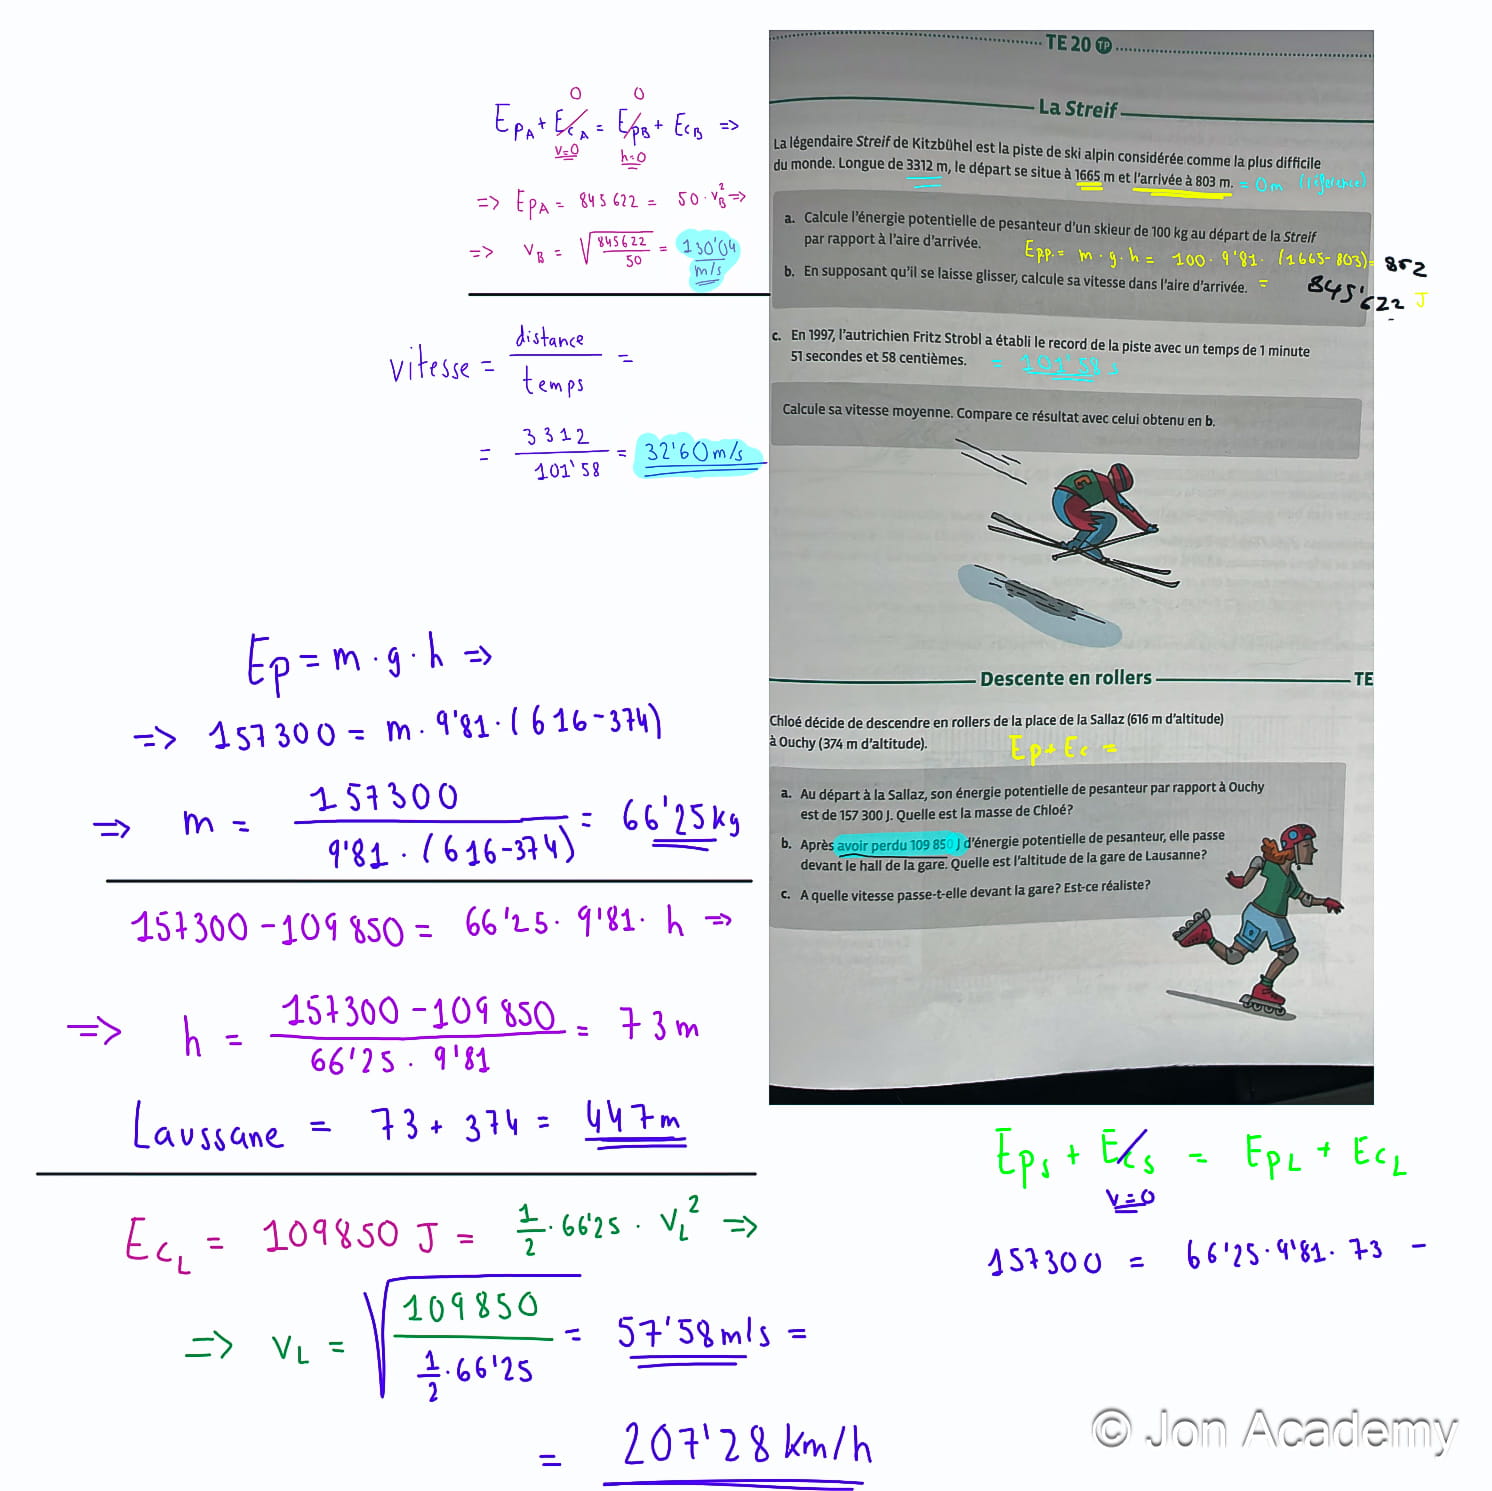 TE 20 TP
La Streif
La légendaire Streif de Kitzbühel est la piste de ski alpin considérée comme la plus difficile
du monde. Longue de 3312 m, le départ se situe à 1665 m et l'arrivée à 803 m. = 0m (référence)
a. Calcule l'énergie potentielle de pesanteur d'un skieur de 100 kg au départ de la Streif
par rapport à l'aire d'arrivée.
Epp. = m · g · h = 100 · 9'81 · (1665-803) = 862
b. En supposant qu'il se laisse glisser, calcule sa vitesse dans l'aire d'arrivée. = 845'622 J
c. En 1997, l'autrichien Fritz Strobl a établi le record de la piste avec un temps de 1 minute
51 secondes et 58 centièmes. = 101'58 s
Calcule sa vitesse moyenne. Compare ce résultat avec celui obtenu en b.
0 0
EpA + EcA = EpB + EcB =>
v=0 h=0
=> EpA = 845622 = 50 · vB² =>
=> vB = √845622/50 = 130'04 m/s
vitesse = distance/temps =
= 3312/101'58 = 32'60 m/s
Descente en rollers
TE
Chloé décide de descendre en rollers de la place de la Sallaz (616 m d'altitude)
à Ouchy (374 m d'altitude).
Ep + Ec =
a. Au départ à la Sallaz, son énergie potentielle de pesanteur par rapport à Ouchy
est de 157 300 J. Quelle est la masse de Chloé?
b. Après avoir perdu 109 850 J d'énergie potentielle de pesanteur, elle passe
devant le hall de la gare. Quelle est l'altitude de la gare de Lausanne?
c. A quelle vitesse passe-t-elle devant la gare? Est-ce réaliste?
Ep = m · g · h =>
=> 157300 = m · 9'81 · (616-374)
=> m = 157300/9'81 · (616-374) = 66'25 kg
157300 - 109850 = 66'25 · 9'81 · h =>
=> h = 157300 - 109850/66'25 · 9'81 = 73 m
Laussane = 73 + 374 = 447 m
EcL = 109850 J = 1/2 · 66'25 · vL² =>
=> vL = √109850/1/2 · 66'25 = 57'58 m/s =
= 207'28 km/h
EpS + EcS = EpL + EcL
v=0
157300 = 66'25 · 9'81 · 73 -
© Jon Academy